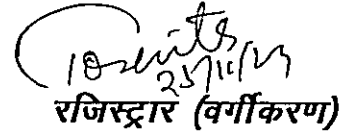 25/11/23
रजिस्ट्रार (वर्गीकरण)